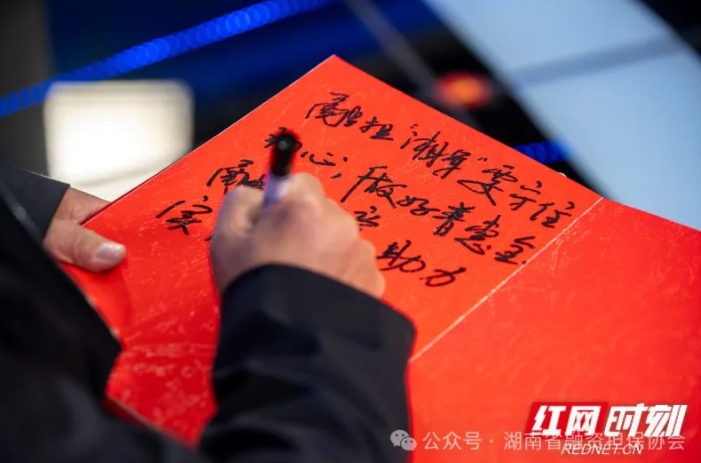 融担“湘军”要守住
心，做好普惠金
融 助力
实
红网时刻
REDNET.CN
公众号·湖南省融资担保协会